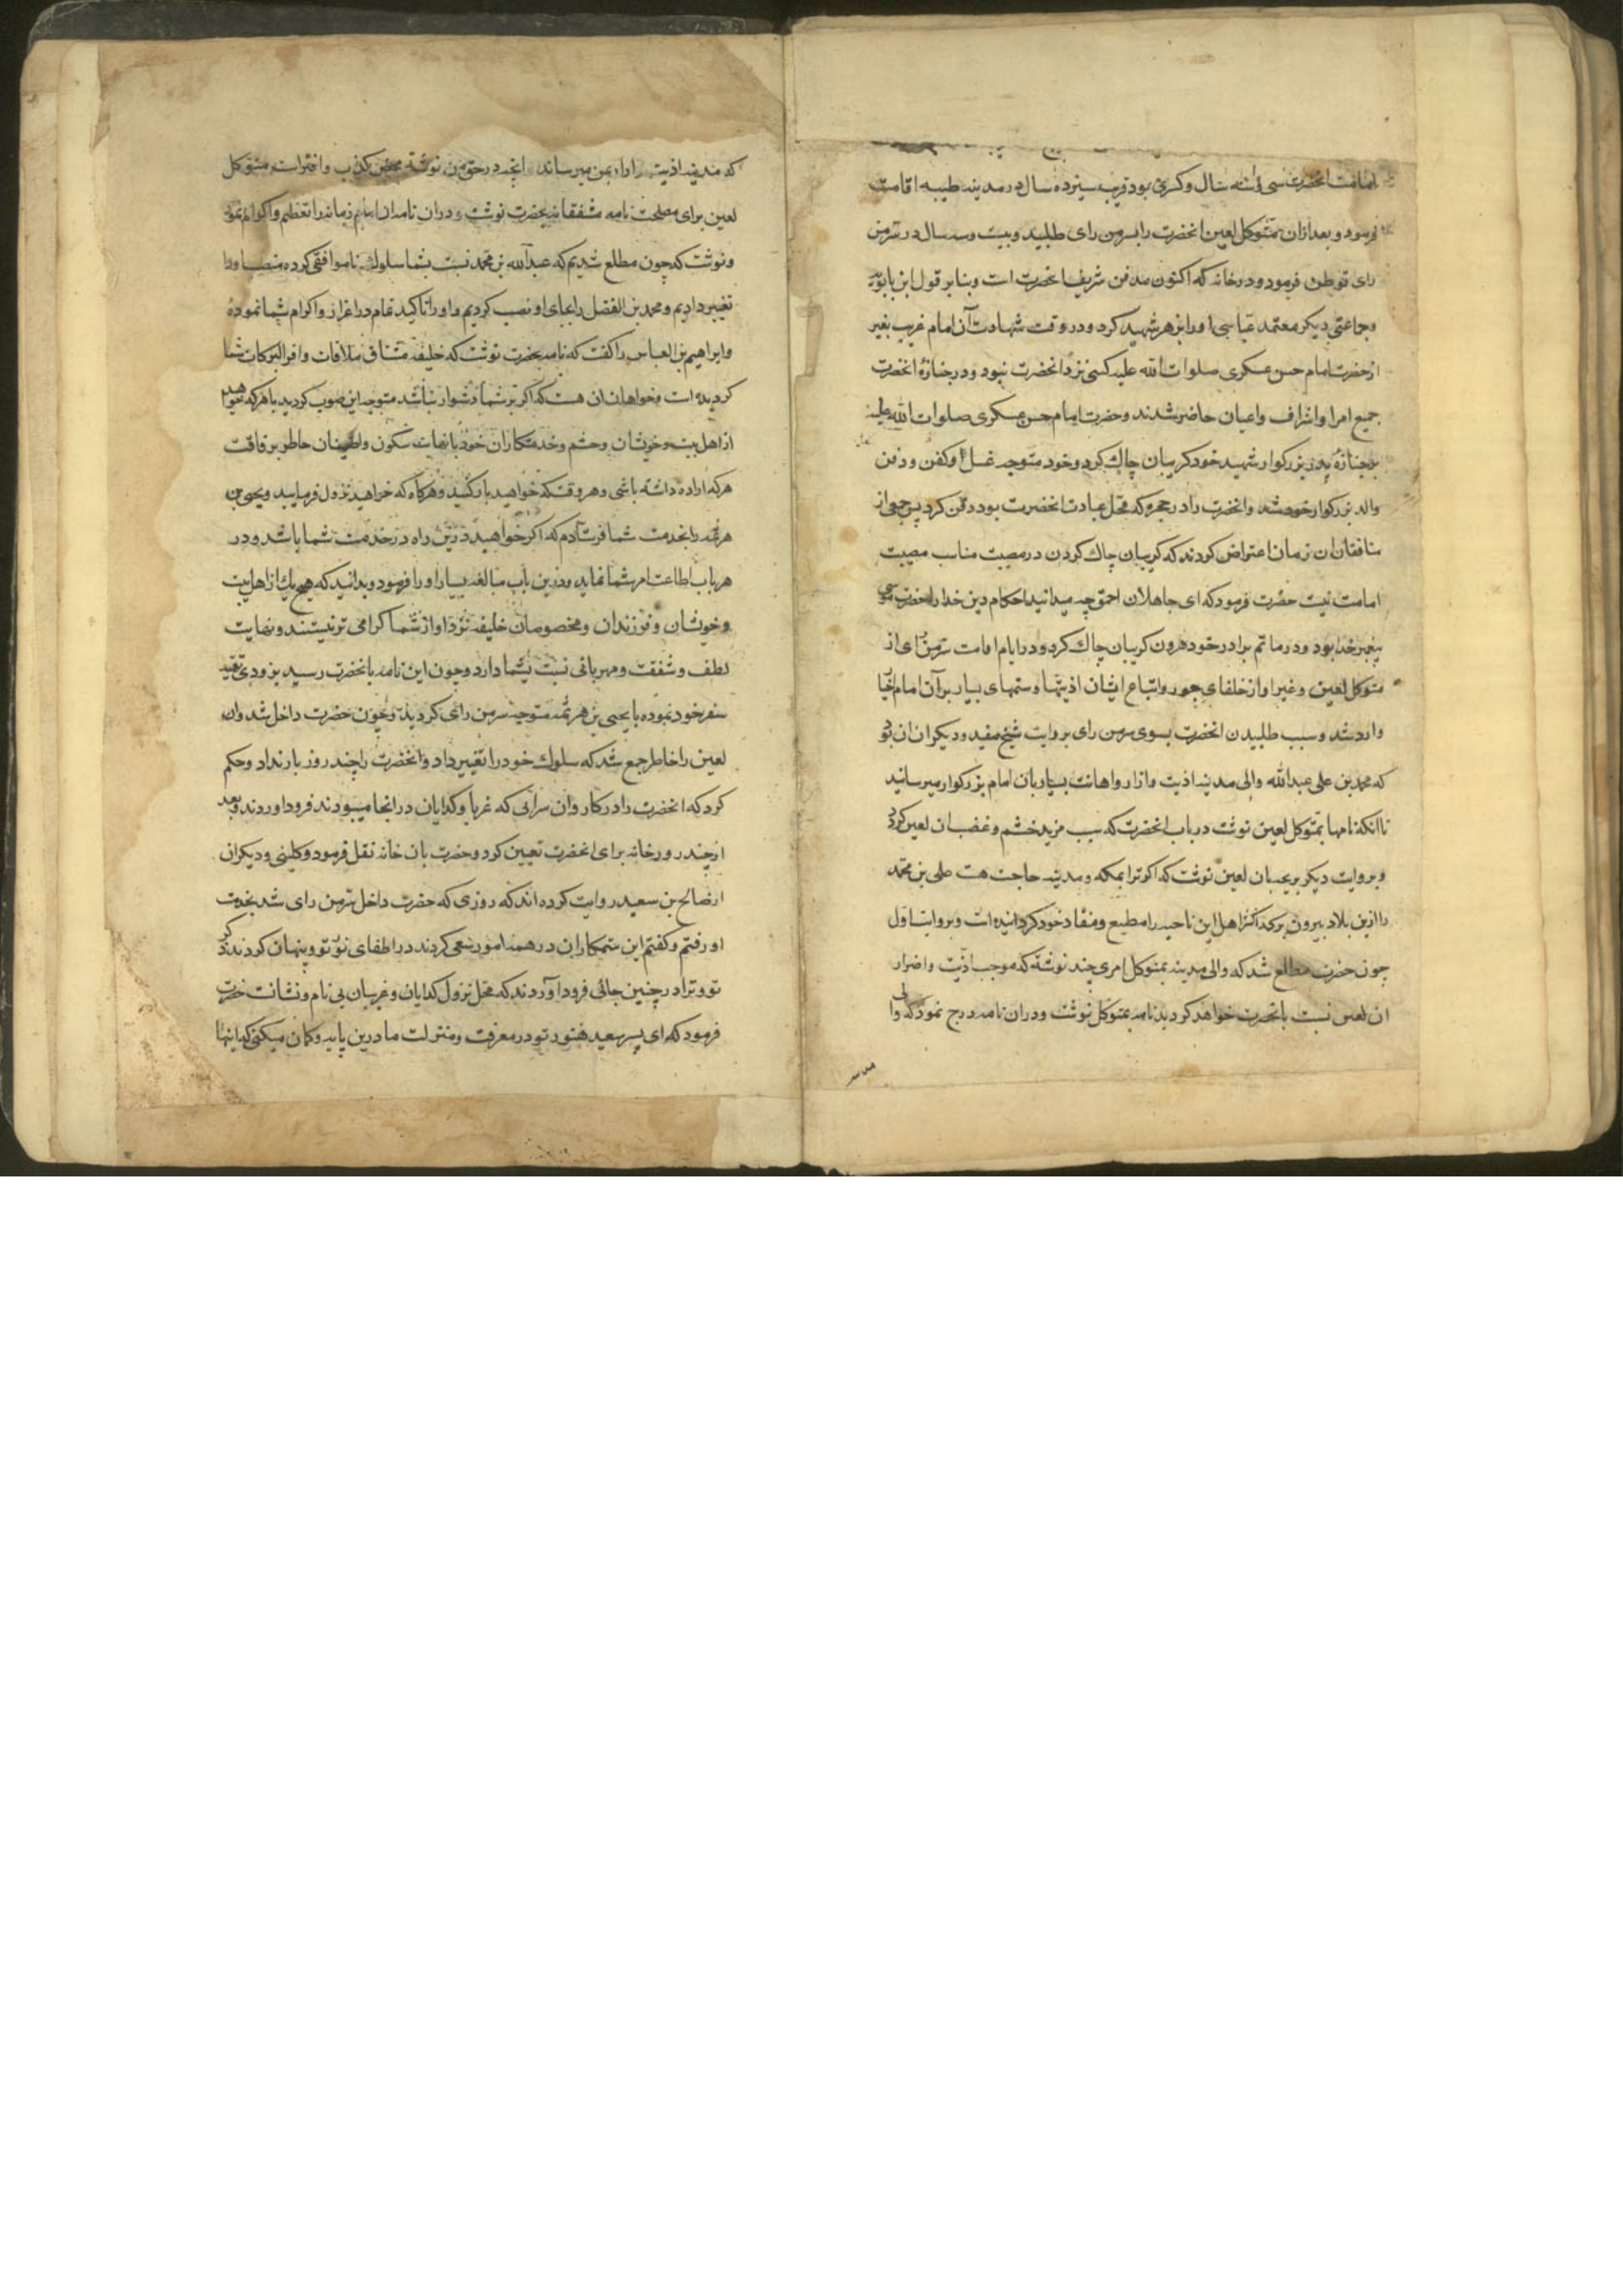 امامت انحضرت سی و سه سال و کسری بود قریب سیزده سال در مدینه طیبه اقامت
فرمود و بعد ازان متوکل لعین انحضرت را بسرمن رای طلبید و بیست و سه سال در سرمن
رای توطن فرمود و در خانه که اکنون مدفن شریف انحضرت است و بنا بر قول ابن بابویه
و جماعتی دیکر معتمد عباسی او را بزهر شهید کرد و در وقت شهادت آن امام غریب بغیر
از حضرت امام حسن عسکری صلوات الله علیه کسی نزد انحضرت نبود و در جنازهٔ انحضرت
جمیع امرا و اشراف و اعیان حاضر شدند و حضرت امام حسن عسکری صلوات الله علیه
بر جنازهٔ پدر بزرکوار شهید خود کریبان چاک کرد و خود متوجه غسل و کفن و دفن
والد بزرکوار خود شد و انحضرت را در حجره که محل عبادت انحضرت بود دفن کرد پس جمعی از
منافقان ان زمان اعتراض کردند که کریبان چاک کردن در مصیبت مناسب مصیبت
امامت نیست حضرت فرمود که ای جاهلان احمق چه میدانید احکام دین خدا را حضرت موسی
پیغمبر خدا بود و در ماتم برادر خود هرون کریبان چاک کرد و در ایام امامت سرمن رای از
متوکل لعین و غیر او از خلفای جور و اتباع ایشان اذیتها و ستمهای بسیار بر آن امام
وارد شد و سبب طلبیدن انحضرت بسوی سرمن رای بروایت شیخ مفید و دیکران ان بود
که محمد بن علی عبدالله والی مدینه اذیت و ازار و اهانت بسیار بان امام بزرکوار میرسانید
تا انکه نامها بمتوکل لعین نوشت در باب انحضرت که سبب مزید خشم و غضب ان لعین کردد
و بروایت دیکر بریحه بان لعین نوشت که اکر ترا بمکه و مدینه حاجت هست علی بن محمد
را ازین بلاد بیرون بر که اکثر اهل این ناحیه را مطیع و منقاد خود کردانیده است و بروایت اول
چون حضرت مطلع شد که والی مدینه بمتوکل امری چند نوشته که موجب اذیت و اضرار
ان لعین نسبت بانحضرت خواهد کردید نامه بمتوکل نوشت و دران نامه درج نمود که والی
که مدینه اذیت و ازار بمن میرساند انچه در حق من نوشته محض کذب و افتراست متوکل
لعین برای مصلحت نامه مشفقانه بحضرت نوشت و دران نامه ان امام زمانرا تعظیم و اکرام نمود
و نوشت که چون مطلع شدیم که عبدالله بن محمد نسبت بشما سلوک ناموافقی کرده منصب او را
تغییر دادیم و محمد بن الفضل را بجای او نصب کردیم و او را تاکید تمام در اعزاز و اکرام شما نموده
و ابراهیم بن العباس را کفت که نامه بحضرت نوشت که خلیفه مشتاق ملاقات وافر البرکات شما
کردیده است و خواهان ان هست که اکر بر شما دشوار نباشد متوجه این صوب کردید با هر که خواهد
از اهل بیت و خویشان و حشم و خدمتکاران خود با نهایت سکون و اطمینان خاطر برفاقت
هر که اراده داشته باشی و هر وقت که خواهید بار کنید و هر کاه که خواهید نزول فرمایید و یحیی بن
هرثمه را بخدمت شما فرستادم که اکر خواهید درین راه در خدمت شما باشد و در
هر باب اطاعت امر شما نماید و درین باب مبالغه بسیار او را فرمود و بدانید که هیچ یک از اهل بیت
و خویشان و فرزندان و مخصوصان خلیفه نزد او از شما کرامی تر نیستند و نهایت
لطف و شفقت و مهربانی نسبت بشما دارد و چون این نامه بانحضرت رسید بزودی تهیه
سفر خود نموده با یحیی بن هرثمه متوجه سرمن رای کردید و چون حضرت داخل شد و ان
لعین را خاطر جمع شد که سلوک خود را تغییر داد و انحضرت را چند روز بار نداد و حکم
کرد که انحضرت را در کاروان سرائی که غربا و کدایان در انجا میبودند فرود اوردند و بعد
از چند روز خانه برای انحضرت تعیین کرد و حضرت بان خانه نقل فرمود و کلینی و دیکران
از صالح بن سعید روایت کرده اند که روزی که حضرت داخل سرمن رای شد بخدمت
او رفتم و کفتم این ستمکاران در همه امور سعی کردند در اطفای نور تو و پنهان کردن ذکر
تو و ترا در چنین جائی فرود آوردند که محل نزول کدایان و غریبان بی نام و نشانست حضرت
فرمود که ای پسر سعید هنوز تو در معرفت و منزلت ما درین پایه و کمان میکنی که اینها